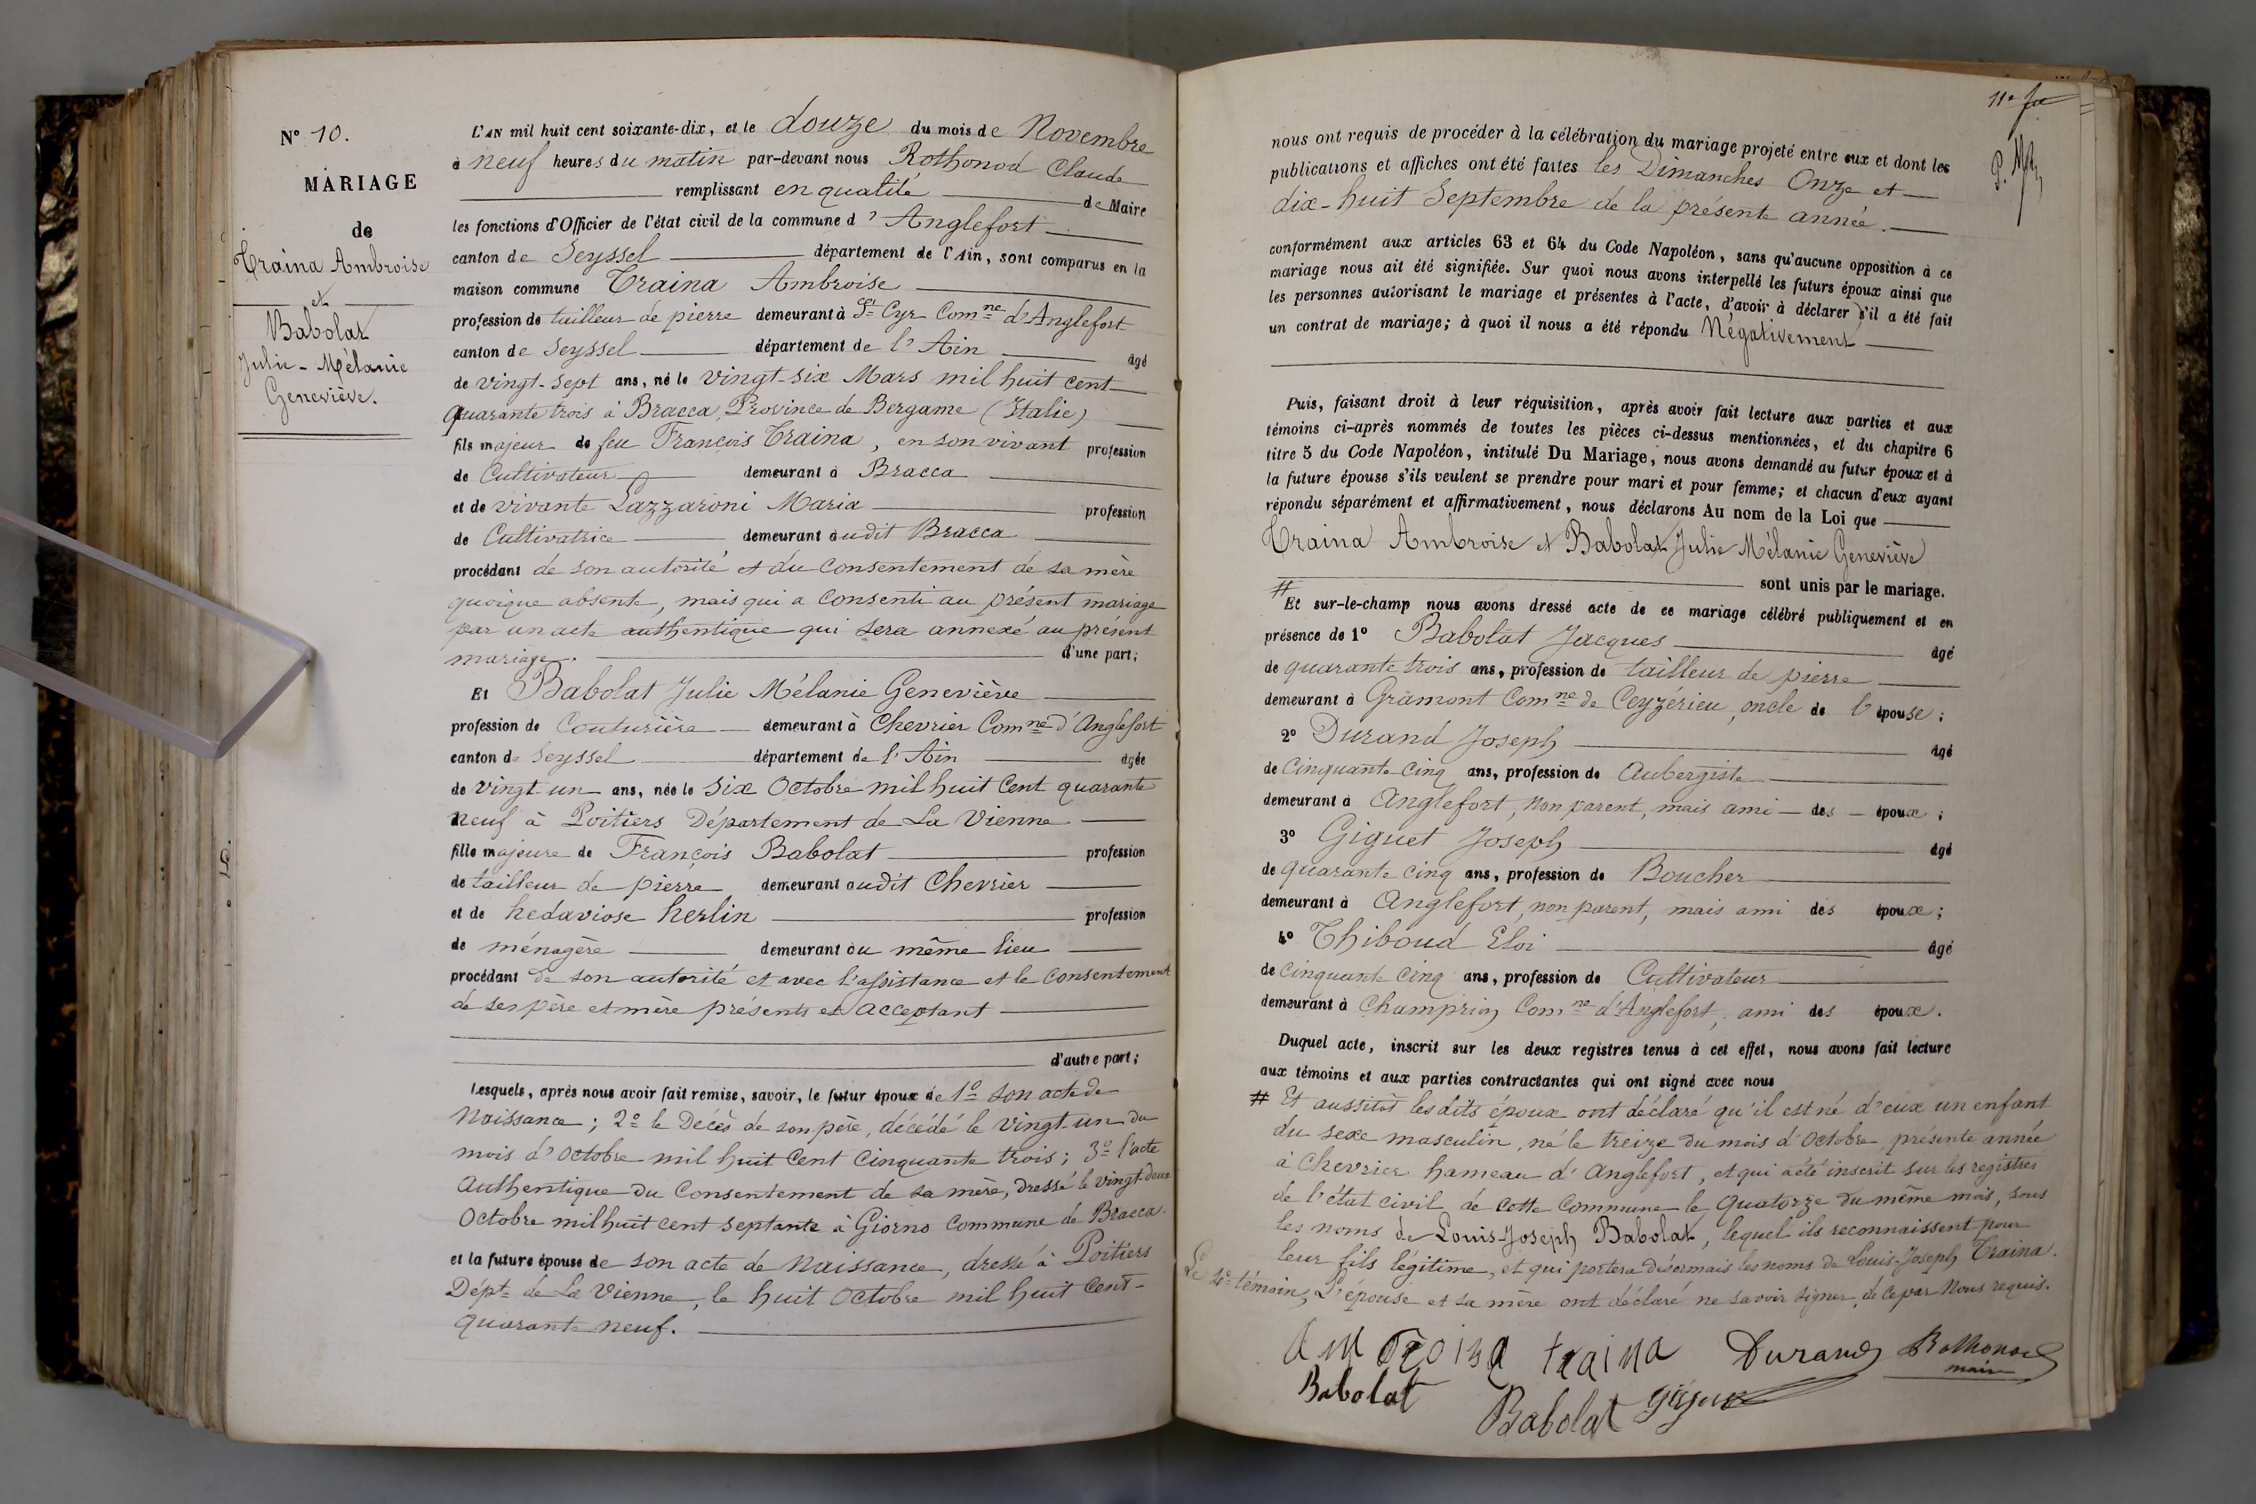 N° 10.
MARIAGE
de
Traina Ambroise
et
Babolat
Julie-Mélanie
Geneviève.
L'AN mil huit cent soixante-dix, et le douze du mois de Novembre
à neuf heures du matin par-devant nous Rothonod Claude
remplissant en qualité de Maire
les fonctions d'Officier de l'état civil de la commune d'Anglefort
canton de Seyssel département de l'Ain, sont comparus en la
maison commune Traina Ambroise
profession de tailleur de pierre demeurant à St Cyr Comne d'Anglefort
canton de Seyssel département de l'Ain âgé
de vingt-sept ans, né le vingt-six Mars mil huit cent
quarante trois à Bracca, Province de Bergame (Italie)
fils majeur de feu François Traina, en son vivant profession
de Cultivateur demeurant à Bracca
et de vivante Lazzaroni Maria profession
de Cultivatrice demeurant audit Bracca
procédant de son autorité et du consentement de sa mère
quoique absente, mais qui a consenti au présent mariage
par un acte authentique qui sera annexé au présent
mariage. d'une part;
Et Babolat Julie Mélanie Geneviève
profession de Couturière demeurant à Chevrier Comne d'Anglefort
canton de Seyssel département de l'Ain âgée
de vingt-un ans, née le six Octobre mil huit cent quarante
neuf à Poitiers Département de La Vienne
fille majeure de François Babolat profession
de tailleur de pierre demeurant audit Chevrier
et de hedaviose herlin profession
de ménagère demeurant au même lieu
procédant de son autorité et avec l'assistance et le consentement
de ses père et mère présents et acceptant
d'autre part;
Lesquels, après nous avoir fait remise, savoir, le futur époux de 1° son acte de
Naissance; 2° le Décès de son père, décédé le vingt-un du
mois d'Octobre mil huit cent cinquante trois; 3° l'acte
Authentique du Consentement de sa mère, dressé le vingt-deux
Octobre mil huit cent septante à Giorno Commune de Bracca.
et la future épouse de son acte de Naissance, dressé à Poitiers
Dépt de La Vienne, le huit Octobre mil huit cent-
quarante neuf.
nous ont requis de procéder à la célébration du mariage projeté entre eux et dont les
publications et affiches ont été faites les Dimanches Onze et
dix-huit Septembre de la présente année.
conformément aux articles 63 et 64 du Code Napoléon, sans qu'aucune opposition à ce
mariage nous ait été signifiée. Sur quoi nous avons interpellé les futurs époux ainsi que
les personnes autorisant le mariage et présentes à l'acte, d'avoir à déclarer s'il a été fait
un contrat de mariage; à quoi il nous a été répondu Négativement
Puis, faisant droit à leur réquisition, après avoir fait lecture aux parties et aux
témoins ci-après nommés de toutes les pièces ci-dessus mentionnées, et du chapitre 6
titre 5 du Code Napoléon, intitulé Du Mariage, nous avons demandé au futur époux et à
la future épouse s'ils veulent se prendre pour mari et pour femme; et chacun d'eux ayant
répondu séparément et affirmativement, nous déclarons Au nom de la Loi que
Traina Ambroise et Babolat Julie Mélanie Geneviève
# sont unis par le mariage.
Et sur-le-champ nous avons dressé acte de ce mariage célébré publiquement et en
présence de 1° Babolat Jacques âgé
de quarante trois ans, profession de tailleur de pierre
demeurant à Gramont Comne de Ceyzérieu, oncle de l'épouse;
2° Durand Joseph âgé
de Cinquante-Cinq ans, profession de Aubergiste
demeurant à Anglefort, non parent, mais ami des époux;
3° Giguet Joseph âgé
de quarante cinq ans, profession de Boucher
demeurant à Anglefort, non parent, mais ami des époux;
4° Thiboud Eloi âgé
de cinquante cinq ans, profession de Cultivateur
demeurant à Champrion Comne d'Anglefort, ami des époux.
Duquel acte, inscrit sur les deux registres tenus à cet effet, nous avons fait lecture
aux témoins et aux parties contractantes qui ont signé avec nous
# Et aussitôt lesdits époux ont déclaré qu'il est né d'eux un enfant
du sexe masculin, né le treize du mois d'Octobre, présente année
à Chevrier hameau d'Anglefort, et qui a été inscrit sur les registres
de l'état civil de cette Commune le Quatorze du même mois, sous
les noms de Louis-Joseph Babolat, lequel ils reconnaissent pour
leur fils légitime, et qui portera désormais les noms de Louis-Joseph Traina.
Le 4e témoin, L'épouse et sa mère ont déclaré ne savoir signer, de ce par Nous requis.
traina Durand Rothonod
maire
Babolat Babolat